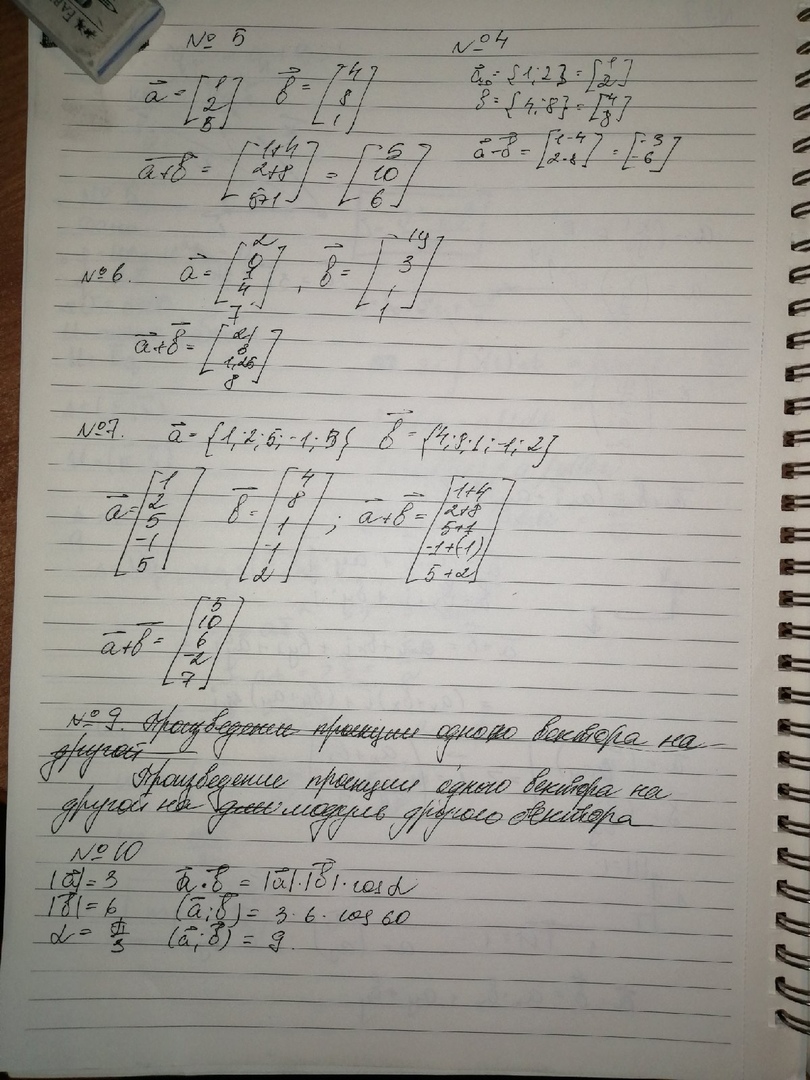 № 5
a = [1 2 5] b = [4 8 1]
a+b = [1+4 2+8 5+1] = [5 10 6]
№ 4
= {1; 2} = [1 2]
b = {4; 8} = [4 8]
a-b = [1-4 2-8] = [-3 -6]
№ 6. a = [2 0 1 4 7], b = [19 3 1 1]
a+b = [21 3 1,25 8]
№ 7. a = {1; 2; 5; -1; 5} b = {4; 8; 1; -1; 2}
a = [1 2 5 -1 5] b = [4 8 1 -1 2] ; a+b = [1+4 2+8 5+1 -1+(1) 5+2]
a+b = [5 10 6 -2 7]
№ 9. Произведение проекции одного вектора на
другой
Произведение проекции одного вектора на
другой на модуль другого вектора
№ 10
|a| = 3 a · b = |a| · |b| · cos α
|b| = 6 (a; b) = 3 · 6 · cos 60
α = π/3 (a; b) = 9.